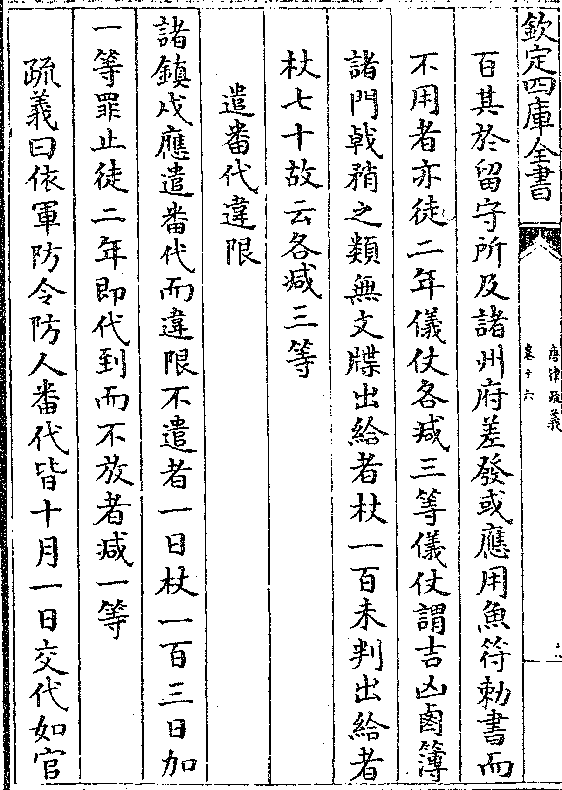 欽定四庫全書
唐律疏義
卷十六
百其於留守所及諸州府差發或應用魚符勅書而
不用者亦徒二年儀仗各減三等儀仗謂吉凶鹵簿
諸門戟矟之類無文牒出給者杖一百未判出給者
杖七十故云各減三等
遣番代違限
諸鎮戍應遣番代而違限不遣者一日杖一百三日加
一等罪止徒二年即代到而不放者減一等
疏義曰依軍防令防人番代皆十月一日交代如官